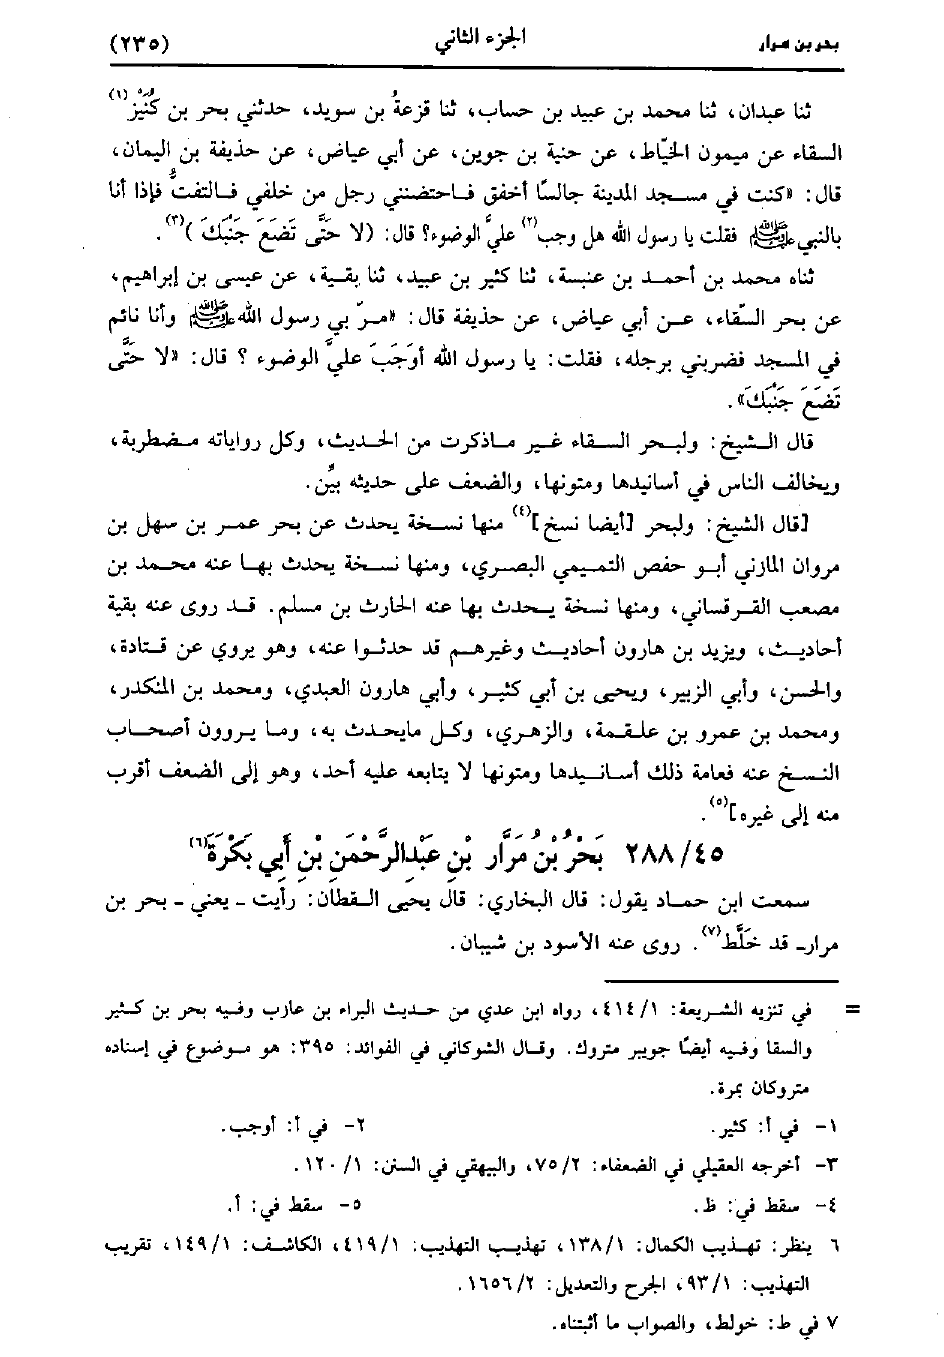 بحر بن مرار الجزء الثاني (٢٣٥)
ثنا عبدان، ثنا محمد بن عبيد بن حساب، ثنا قزعةُ بن سويد، حدثني بحر بن كُنَيْز(١)
السقاء عن ميمون الخيّاط، عن حنية بن جوين، عن أبي عياض، عن حذيفة بن اليمان،
قال: «كنت في مسجد المدينة جالسًا أخفق فاحتضنني رجل من خلفي فالتفتُّ فإذا أنا
بالنبي ﷺ فقلت يا رسول الله هل وجب(٢) عليَّ الوضوء؟ قال: (لا حَتَّى تَضَعَ جَنْبَكَ )(٣).
ثناه محمد بن أحمد بن عنبسة، ثنا كثير بن عبيد، ثنا بقية، عن عيسى بن إبراهيم،
عن بحر السَّقاء، عن أبي عياض، عن حذيفة قال: «مرّ بي رسول الله ﷺ وأنا نائم
في المسجد فضربني برجله، فقلت: يا رسول الله أوَجَبَ عليَّ الوضوء ؟ قال: «لا حَتَّى
تَضَعَ جَنْبَكَ».
قال الشيخ: ولبحر السقاء غير ماذكرت من الحديث، وكل رواياته مضطربة،
ويخالف الناس في أسانيدها ومتونها، والضعف على حديثه بيِّن.
[قال الشيخ: ولبحر [أيضا نسخ](٤) منها نسخة يحدث عن بحر عمر بن سهل بن
مروان المازني أبو حفص التميمي البصري، ومنها نسخة يحدث بها عنه محمد بن
مصعب القرقساني، ومنها نسخة يحدث بها عنه الحارث بن مسلم. قد روى عنه بقية
أحاديث، ويزيد بن هارون أحاديث وغيرهم قد حدثوا عنه، وهو يروي عن قتادة،
والحسن، وأبي الزبير، ويحيى بن أبي كثير، وأبي هارون العبدي، ومحمد بن المنكدر،
ومحمد بن عمرو بن علقمة، والزهري، وكل مايحدث به، وما يروون أصحاب
النسخ عنه فعامة ذلك أسانيدها ومتونها لا يتابعه عليه أحد، وهو إلى الضعف أقرب
منه إلى غيره](٥).
٢٨٨/٤٥ بَحْرُ بْنُ مُرَّار بْنِ عَبْدالرَّحْمَنِ بْنِ أَبي بَكْرَةَ(٦)
سمعت ابن حماد يقول: قال البخاري: قال يحيى القطان: رأيت ـ يعني ـ بحر بن
مرارـ قد خَلَّط(٧). روى عنه الأسود بن شيبان.
= في تنزيه الشريعة: ٤١٤/١، رواه ابن عدي من حديث البراء بن عازب وفيه بحر بن كثير
والسقا وفيه أيضًا جويبر متروك. وقال الشوكاني في الفوائد: ٣٩٥: هو موضوع في إسناده
متروكان بمرة.
١- في أ: كثير. ٢- في أ: أوجب.
٣- أخرجه العقيلي في الضعفاء: ٧٥/٢، والبيهقي في السنن: ١٢٠/١.
٤- سقط في: ظ. ٥- سقط في: أ.
٦ ينظر: تهذيب الكمال: ١٣٨/١، تهذيب التهذيب: ٤١٩/١، الكاشف: ١٤٩/١، تقريب
التهذيب: ٩٣/١، الجرح والتعديل: ١٦٥٦/٢.
٧ في ط: خولط، والصواب ما أثبتناه.